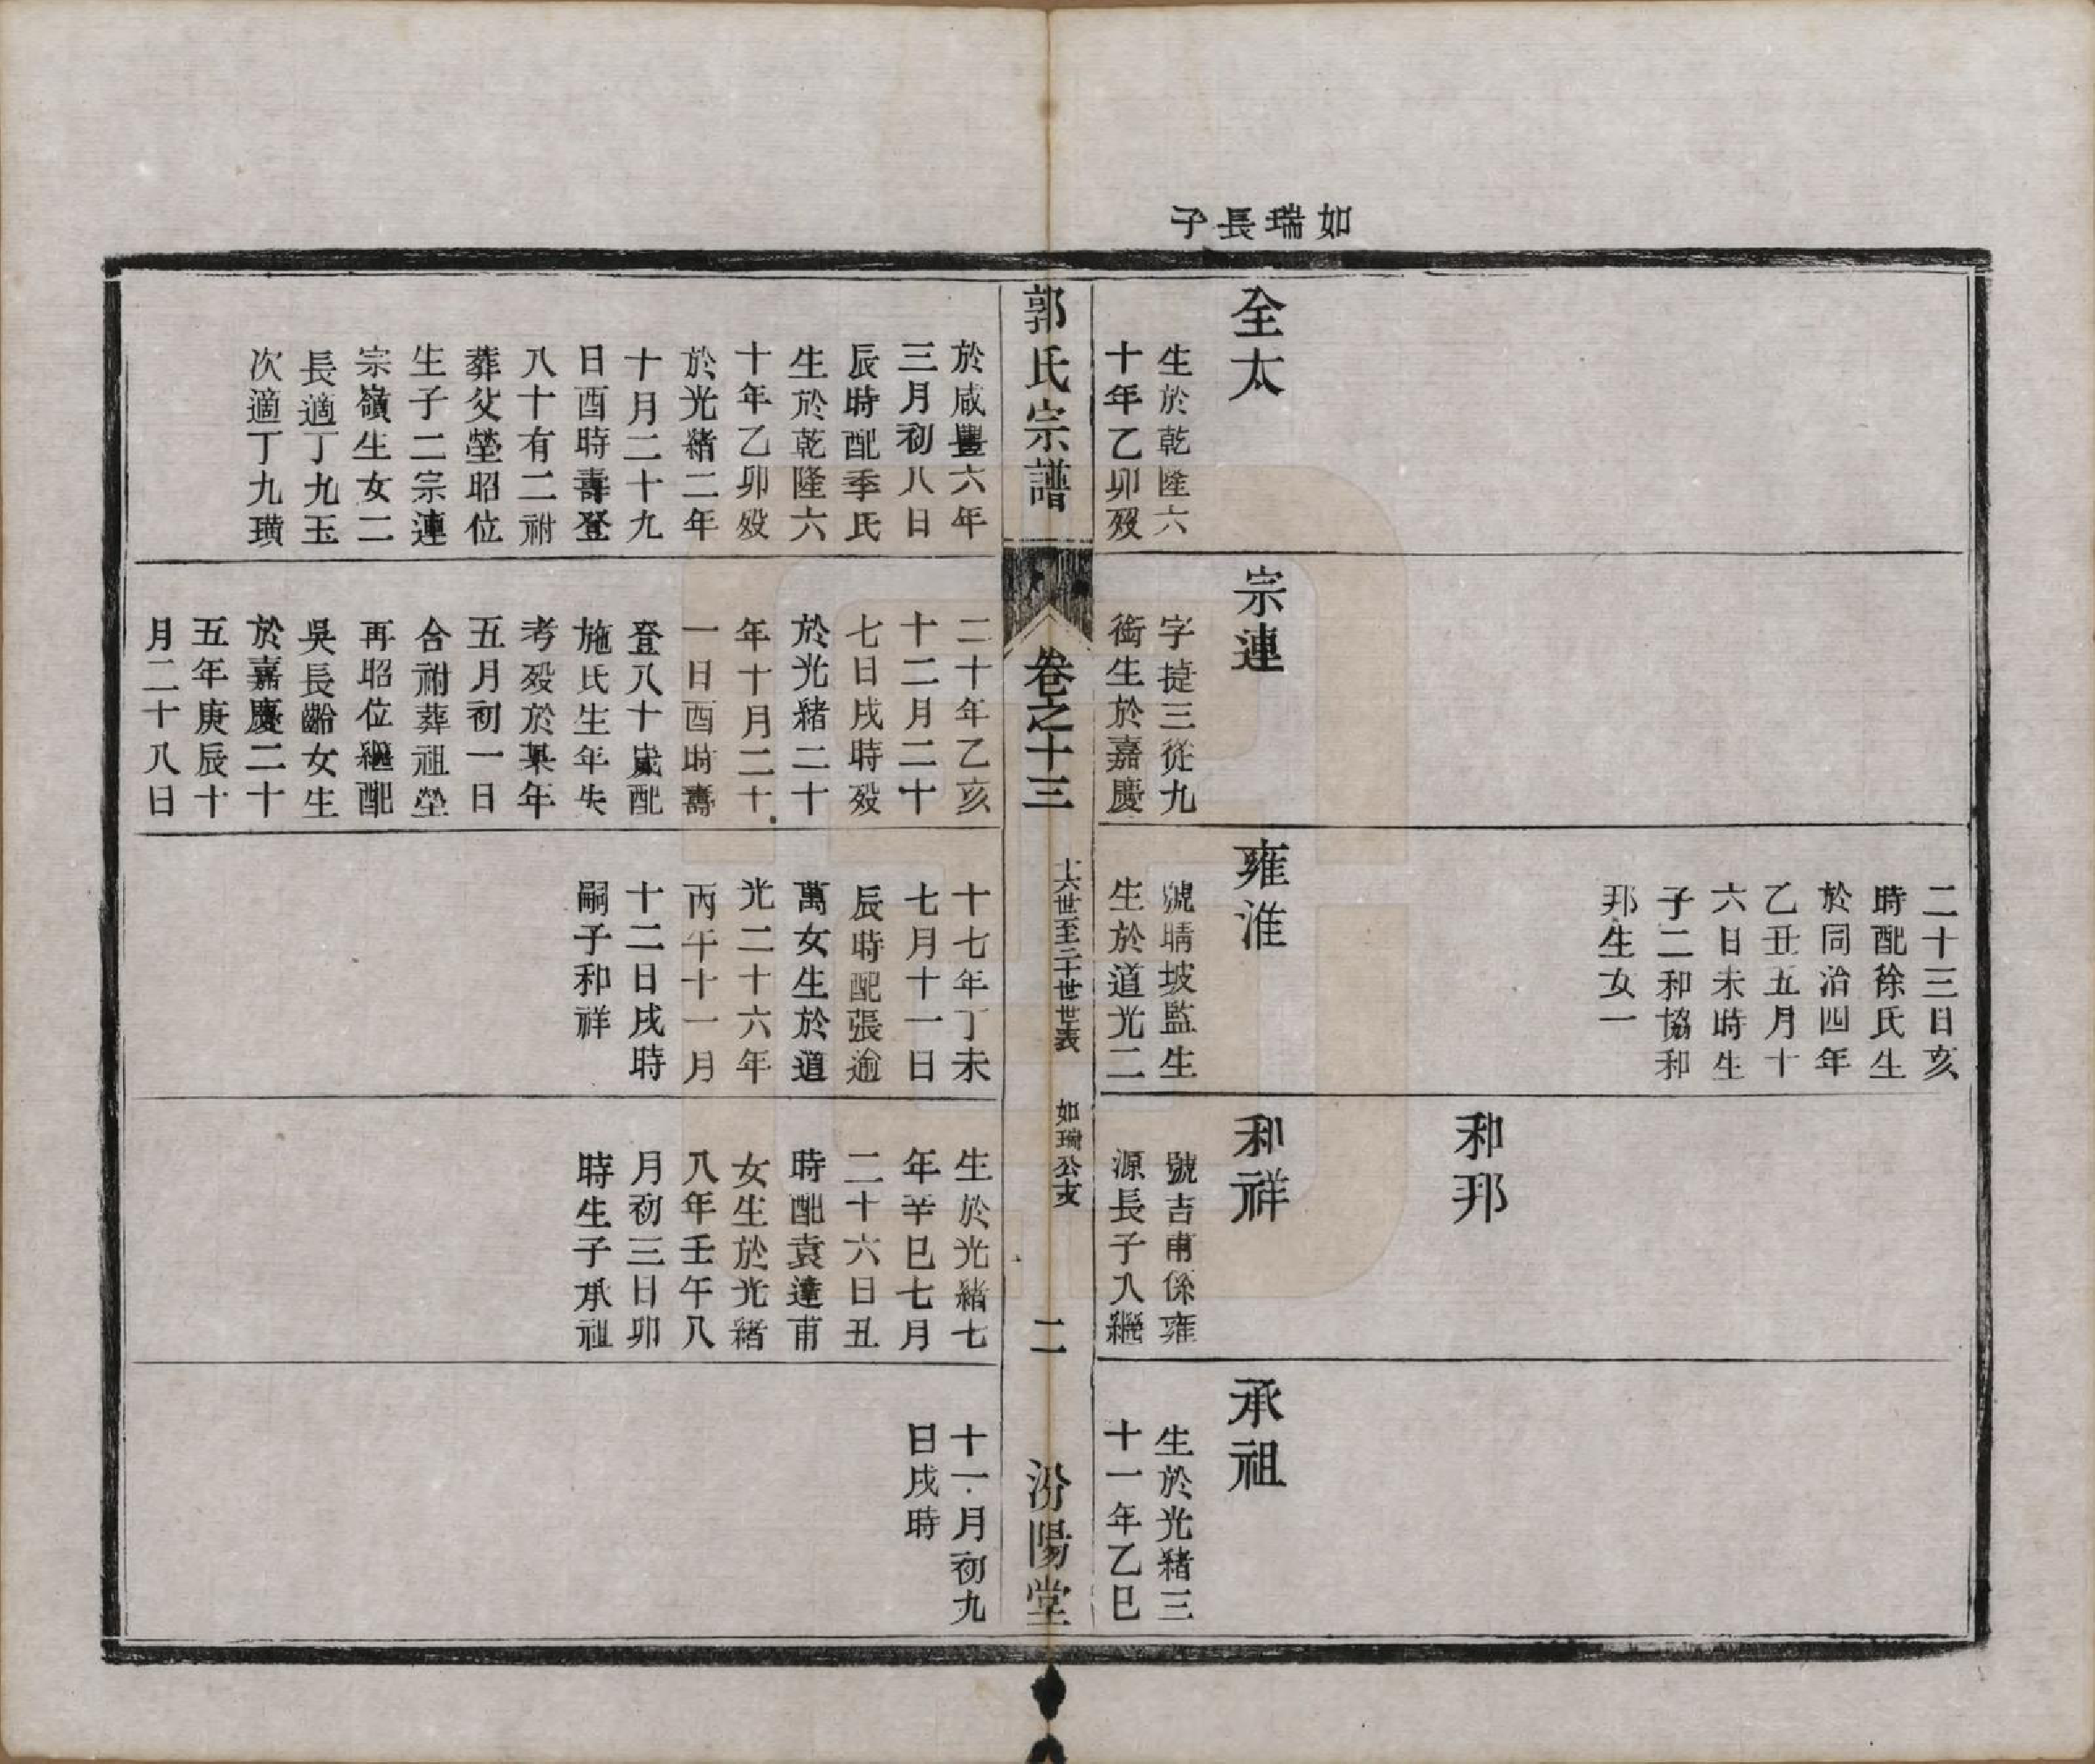 如瑞長子
全太
生於乾隆六
十年乙卯歿
宗連
字捷三從九
銜生於嘉慶
二十三日亥
時配徐氏生
於同治四年
乙丑五月十
六日未時生
子二和協和
邦生女一
雍淮
號晴坡監生
生於道光二
和邦
和祥
號吉甫係雍
源長子入繼
承祖
生於光緒三
十一年乙巳
郭氏宗譜
卷之十三
十六世至三十世世表
如瑞公支
二
汾陽堂
於咸豐六年
三月初八日
辰時配季氏
生於乾隆六
十年乙卯歿
於光緒二年
十月二十九
日酉時壽登
八十有二祔
葬父塋昭位
生子二宗連
宗嶺生女二
長適丁九玉
次適丁九璜
二十年乙亥
十二月二十
七日戌時歿
於光緒二十
年十月二十
一日酉時壽
登八十歲配
施氏生年失
考歿於某年
五月初一日
合祔葬祖塋
再昭位繼配
吳長齡女生
於嘉慶二十
五年庚辰十
月二十八日
十七年丁未
七月十一日
辰時配張逾
萬女生於道
光二十六年
丙午十一月
十二日戌時
嗣子和祥
生於光緒七
年辛巳七月
二十六日丑
時配袁達甫
女生於光緒
八年壬午八
月初三日卯
時生子承祖
十一月初九
日戌時